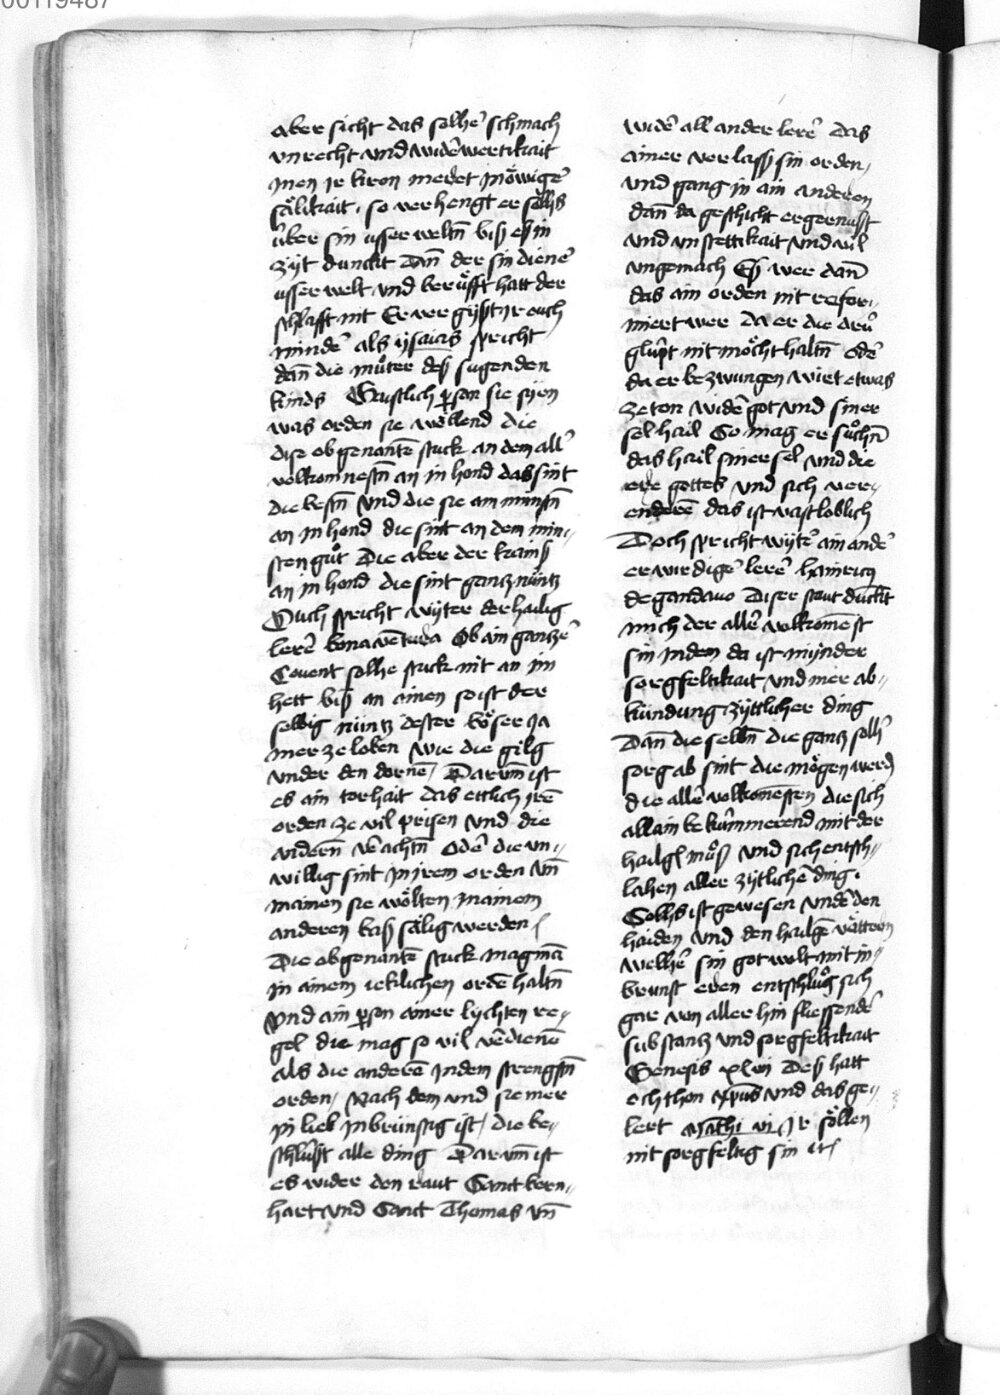 00119487
aber sicht das solhe᷎ schmach
vnrecht vnd widerwertikait
inen ir kron meret in öwige᷎
sälikait. so verhengt er sölhs
über sin usserweltn̄ biß es in
zyt dunckt Dan̄ der sin diene᷎
usserwelt vnd berüfft hatt der
schlafft nit Er vergißt ir ouch
minde᷎ als ysaias spricht
dan̄ die muͦter deß sugenden
kinds Gaistlich pson sie syen
was orden sie wöllend die
dise obgenante᷎ stuck an dem all᷎
volkomnestn̄ an in hond das sint
die bestn̄ Vnd die sie am minstn̄
an in hond die sint an dem min⸗
sten guͦt Die aber der kains
an in hond die sint gantz nüntz
Ouch spricht wyter der hailig
lere᷎ bonaventura Ob ain gantze᷎
Couent solhe stuck nit an im
hett biß an ainen so ist der
selbig nüntz dester böser ja
mer ze loben wie die gilg
vnder den dornen᷎ Darum̄ ist
es ain torhait das ettlich ire᷎
orden ze vil prisen vnd die
andern̄ verachtn̄ ode᷎ die vn⸗
willig sint in irem orden vn̄
mainen sie wölten in ainem
anderen baß sälig werden
Die obgenante᷎ stuck mag man̄
in ainem ieklichen orde᷎ haltn̄
Vnd ain pson ainer lychten re⸗
gel die mag so vil verdiene᷎
als die andere᷎ in dem strengstn̄
orden/ Nach dem vnd sie mer
in lieb inbrünstig ist/ die be⸗
schlüßt alle ding Darum̄ ist
es wider den raut Sanct bern⸗
hart vnd Sanct Thomas vn̄
wide᷎ all ander lere᷎ Das
ainer verlaß sin orden/
vnd gang in ain anderen
dan̄ da geschicht ergernusst
vnd vnstettikait vnd vil
vngemach Eß wer dan̄
das ain orden nit refor⸗
miert wer Da er die dru᷎
glüpt nit möcht haltn̄ ode᷎
da er bezwungen wirt etwas
ze ton wide᷎ got vnd siner
sel hail So mag er suͦchn̄
das hail siner sel vnd die
ere gottes vnd sich ver⸗
endere᷎ das ist vast loblich
Doch spricht wyte᷎ ain ande᷎
erwirdige᷎ lere᷎ hainricq
de gandauo Diser staut dunckt
mich der alle᷎ volkome᷎st
sin In dem da ist mynder
sorgfeltikait vnd mer ab⸗
kündung zyttlicher ding
Dan̄ die selbn̄ die gantz sollh᷎
sorg ab sint die mögen werd᷎
die alle᷎ volkome᷎sten die sich
allain bekümmerend mit der
hailgē muͦß vnd sich entsch⸗
lahen aller zytlichē ding.
Sollhs ist gewesen vnde᷎ den
haiden vnd den hailgē vättern
welhe᷎ sin got wolt mit in⸗
brunst eren entschluͦg sich
gar von aller hin fliessende᷎
substantz vnd sorgfeltikait
Genesis xlvij Deß hatt
och thon xp̄us vnd das ge⸗
lert Mathi vi Ir söllen
nit sorgfeltig sin etc̄